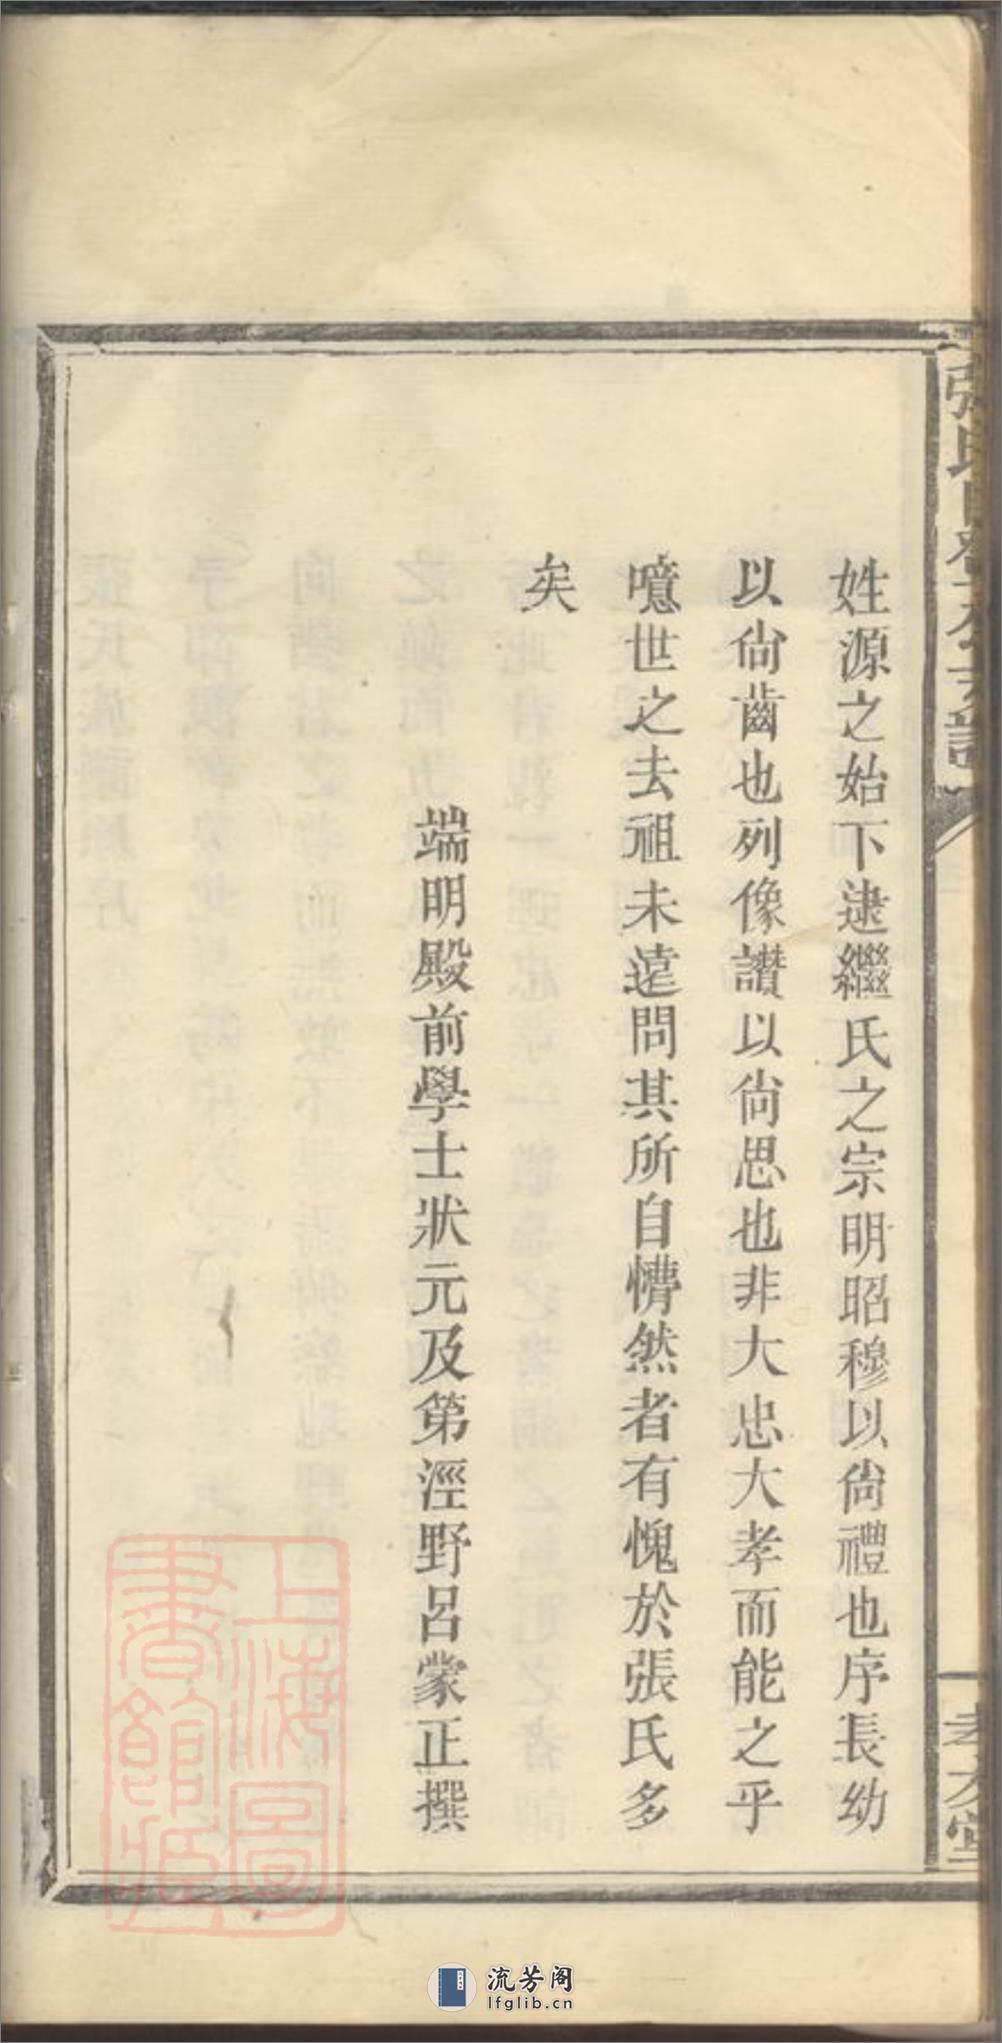 姓源之始下逮繼氏之宗明昭穆以尙禮也序長幼
以尙齒也列像讚以尙思也非大忠大孝而能之乎
噫世之去祖未遠問其所自懵然者有愧於張氏多
矣
端明殿前學士狀元及第涇野呂蒙正撰
張氏
孝友堂
上海圖
書館藏
流芳阁
lfglib.cn